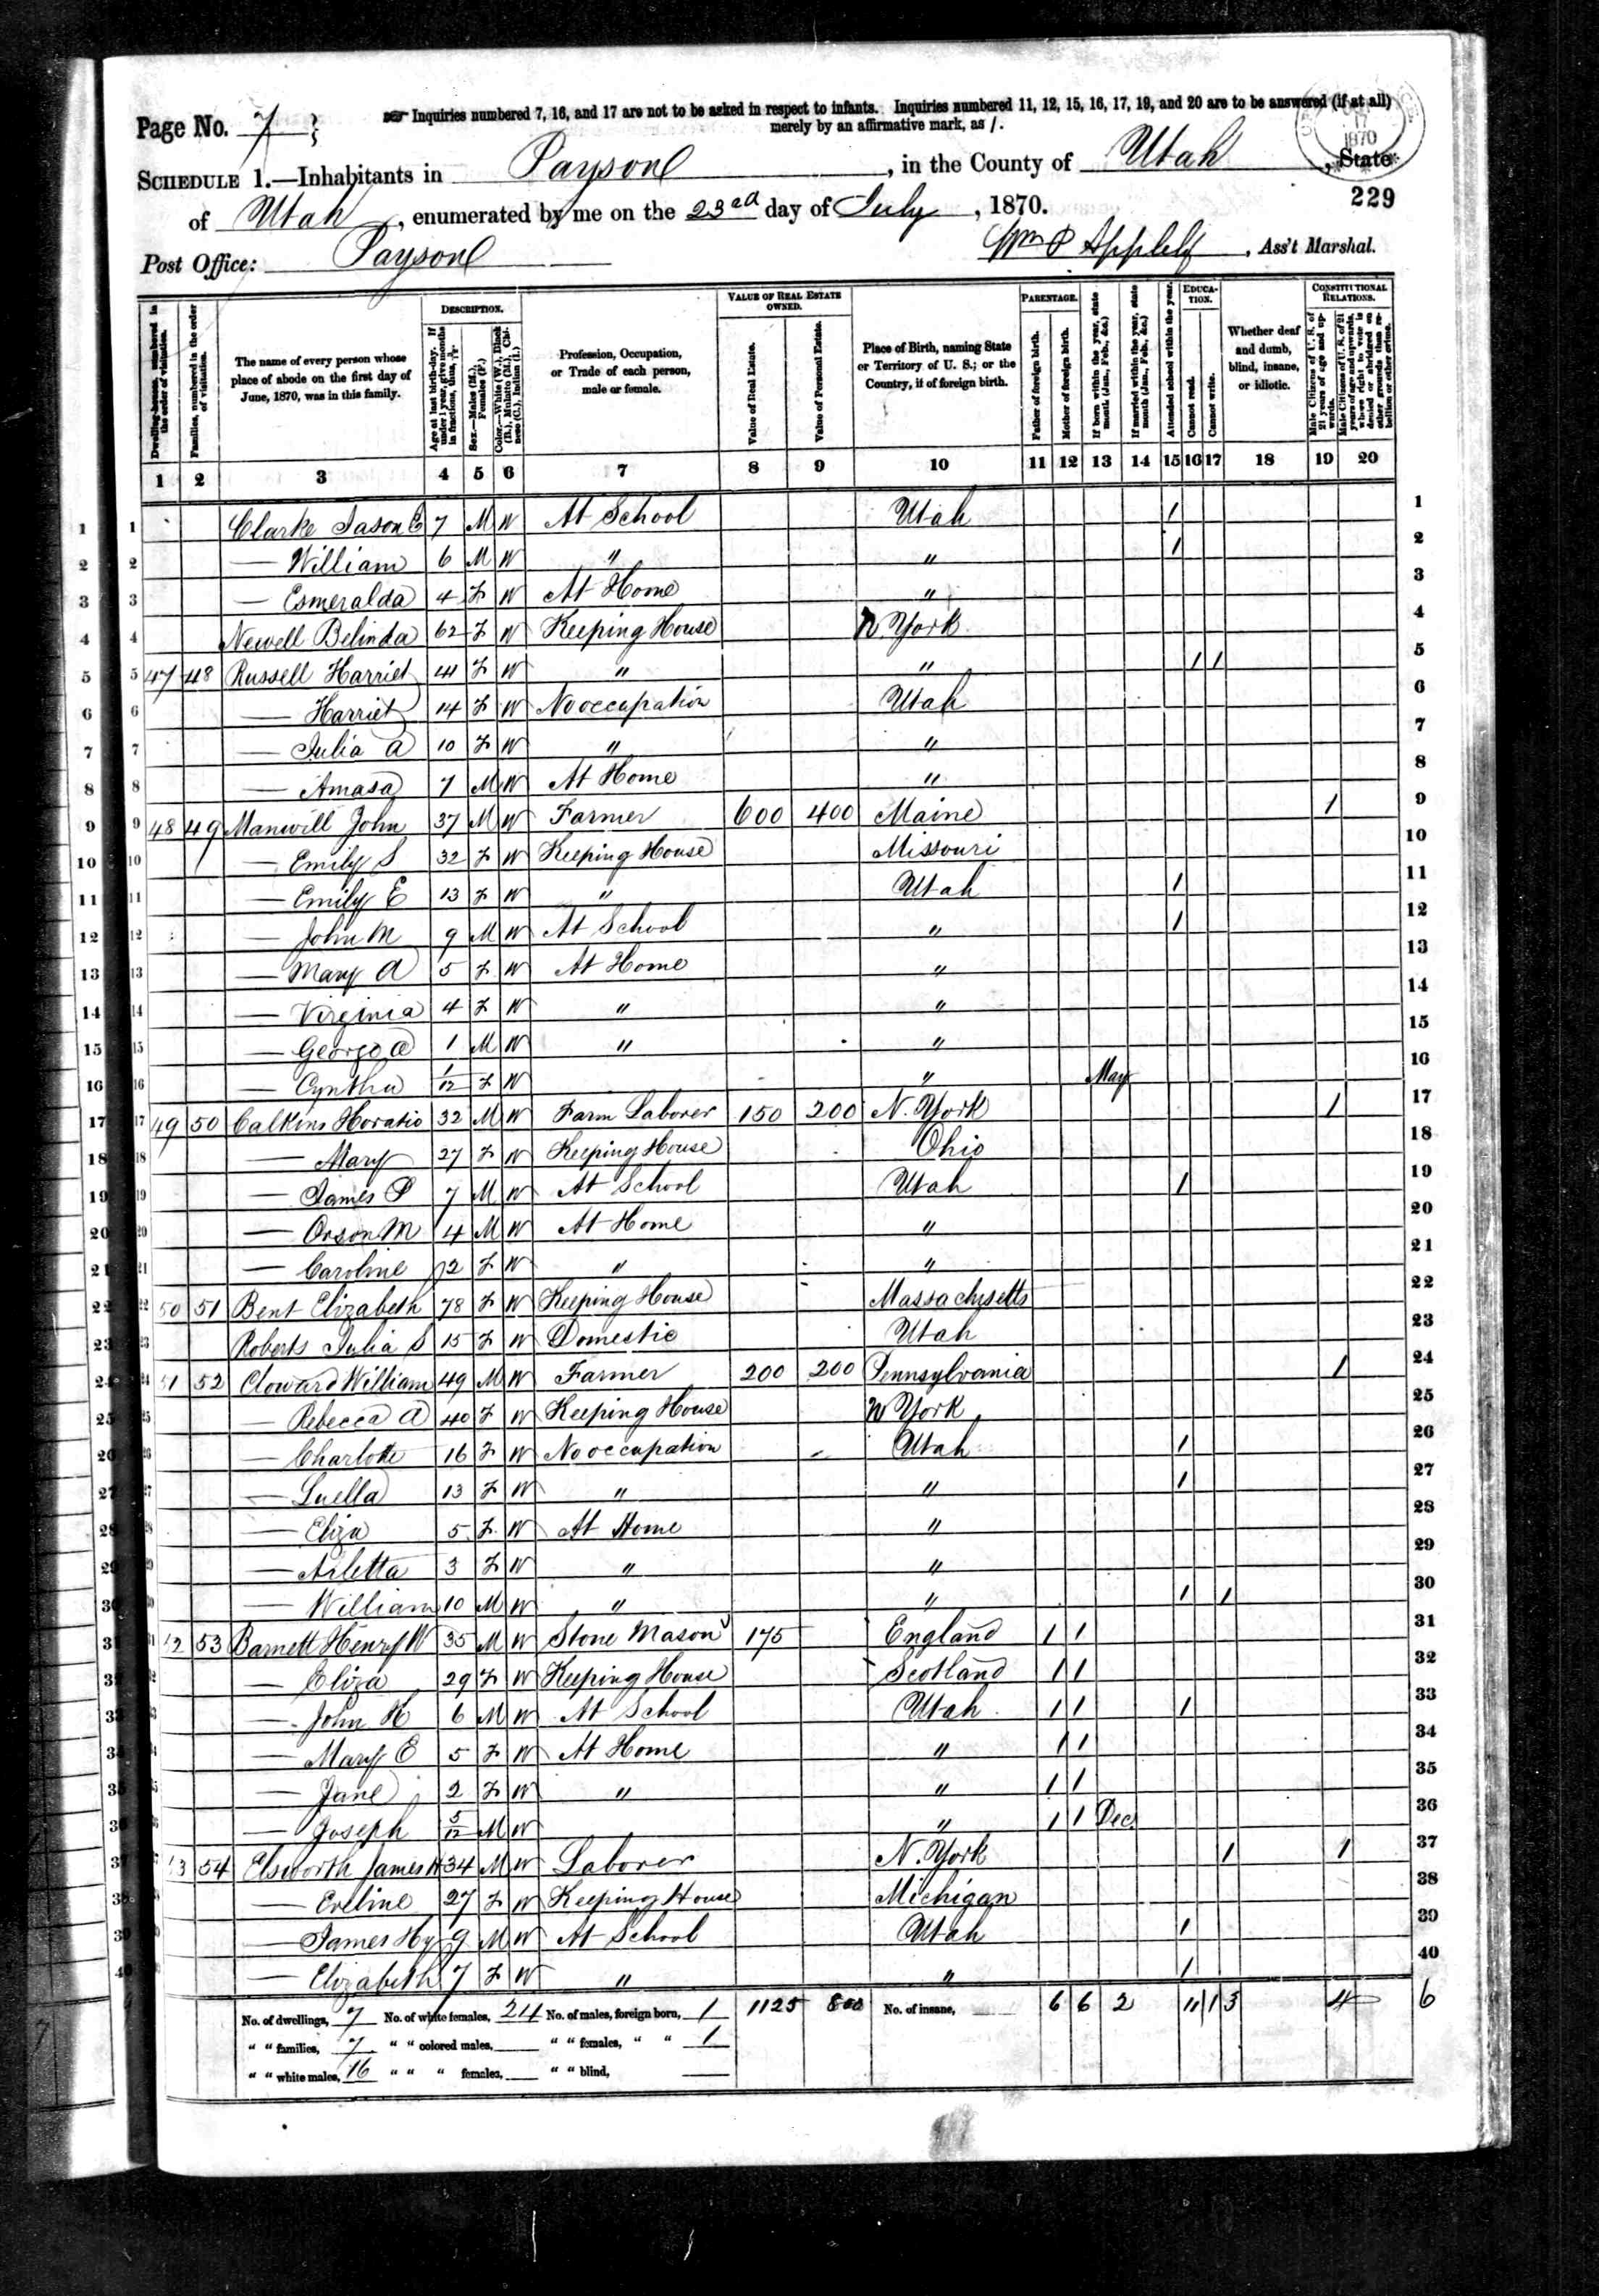 Page No. 7
Inquiries numbered 7, 16, and 17 are not to be asked in respect to infants. Inquiries numbered 11, 12, 15, 16, 17, 19, and 20 are to be answered (if at all)
merely by an affirmative mark, as /.
SCHEDULE 1.—Inhabitants in Payson, in the County of Utah, State
of Utah, enumerated by me on the 23rd day of July, 1870.
229
Post Office: Payson
Ass't Marshal.
1870
Dwelling-houses, numbered in the order of visitation.
Families, numbered in the order of visitation.
The name of every person whose place of abode on the first day of June, 1870, was in this family.
DESCRIPTION.
Age at last birth-day. If under 1 year, give months in fractions, thus, 3/12.
Sex.—Males (M.), Females (F.)
Color.—White (W.), Black (B.), Mulatto (M.), Chinese (C.), Indian (I.)
Profession, Occupation, or Trade of each person, male or female.
VALUE OF REAL ESTATE OWNED.
Value of Real Estate.
Value of Personal Estate.
Place of Birth, naming State or Territory of U. S.; or the Country, if of foreign birth.
PARENTAGE.
Father of foreign birth.
Mother of foreign birth.
If born within the year, state month (Jan., Feb., &c.)
If married within the year, state month (Jan., Feb., &c.)
Attended school within the year.
EDUCATION.
Cannot read.
Cannot write.
Whether deaf and dumb, blind, insane, or idiotic.
CONSTITUTIONAL RELATIONS.
Male Citizens of U. S. of 21 years of age and upwards.
Male Citizens of U. S. of 21 years of age and upwards, whose right to vote is denied or abridged on other grounds than rebellion or other crime.
1 2 3 4 5 6 7 8 9 10 11 12 13 14 15 16 17 18 19 20
1 Clarke Jason E 7 M W At School Utah 1 1
2 — William 6 M W " " 1 2
3 — Esmeralda 4 F W At Home " 3
4 Newell Belinda 62 F W Keeping House N York 4
5 47 48 Russell Harriet 41 F W " " 1 1 5
6 — Harriet 14 F W No occupation Utah 6
7 — Julia A 10 F W " " 7
8 — Amasa 7 M W At Home " 8
9 48 49 Manwill John 37 M W Farmer 600 400 Maine 1 9
10 — Emily S 32 F W Keeping House Missouri 10
11 — Emily E 13 F W " Utah 1 11
12 — John M 9 M W At School " 1 12
13 — Mary A 5 F W At Home " 13
14 — Virginia 4 F W " " 14
15 — George A 1 M W " " 15
16 — Cynthia 1/12 F W " May 16
17 49 50 Calkins Horatio 32 M W Farm Laborer 150 200 N. York 1 17
18 — Mary 27 F W Keeping House Ohio 18
19 — James P 7 M W At School Utah 1 19
20 — Orson M 4 M W At Home " 20
21 — Caroline 2 F W " " 21
22 50 51 Bent Elizabeth 78 F W Keeping House Massachusetts 22
23 Roberts Julia S 15 F W Domestic Utah 23
24 51 52 Cloward William 49 M W Farmer 200 200 Pennsylvania 1 24
25 — Rebecca A 40 F W Keeping House N York 25
26 — Charlotte 16 F W No occupation Utah 1 26
27 — Luella 13 F W " " 1 27
28 — Eliza 5 F W At Home " 28
29 — Arletta 3 F W " " 29
30 — William 10 M W " " 1 1 30
31 2 53 Barnett Henry W 35 M W Stone Mason 175 England 1 1 31
32 — Eliza 29 F W Keeping House Scotland 1 1 32
33 — John H 6 M W At School Utah 1 1 1 33
34 — Mary E 5 F W At Home " 1 1 34
35 — Jane 2 F W " " 1 1 35
36 — Joseph 5/12 M W " 1 1 Dec. 36
37 3 54 Elsworth James H 34 M W Laborer N. York 1 1 37
38 — Eveline 27 F W Keeping House Michigan 38
39 — James Hy 9 M W At School Utah 1 39
40 — Elizabeth 7 F W " " 1 40
No. of dwellings, 7 No. of white females, 24 No. of males, foreign born, 1 1125 800 No. of insane, 6 6 2 11 1 3 4 6
" " families, 7 " " colored males, " " females, " " 1
" " white males, 16 " " " females, " " blind,